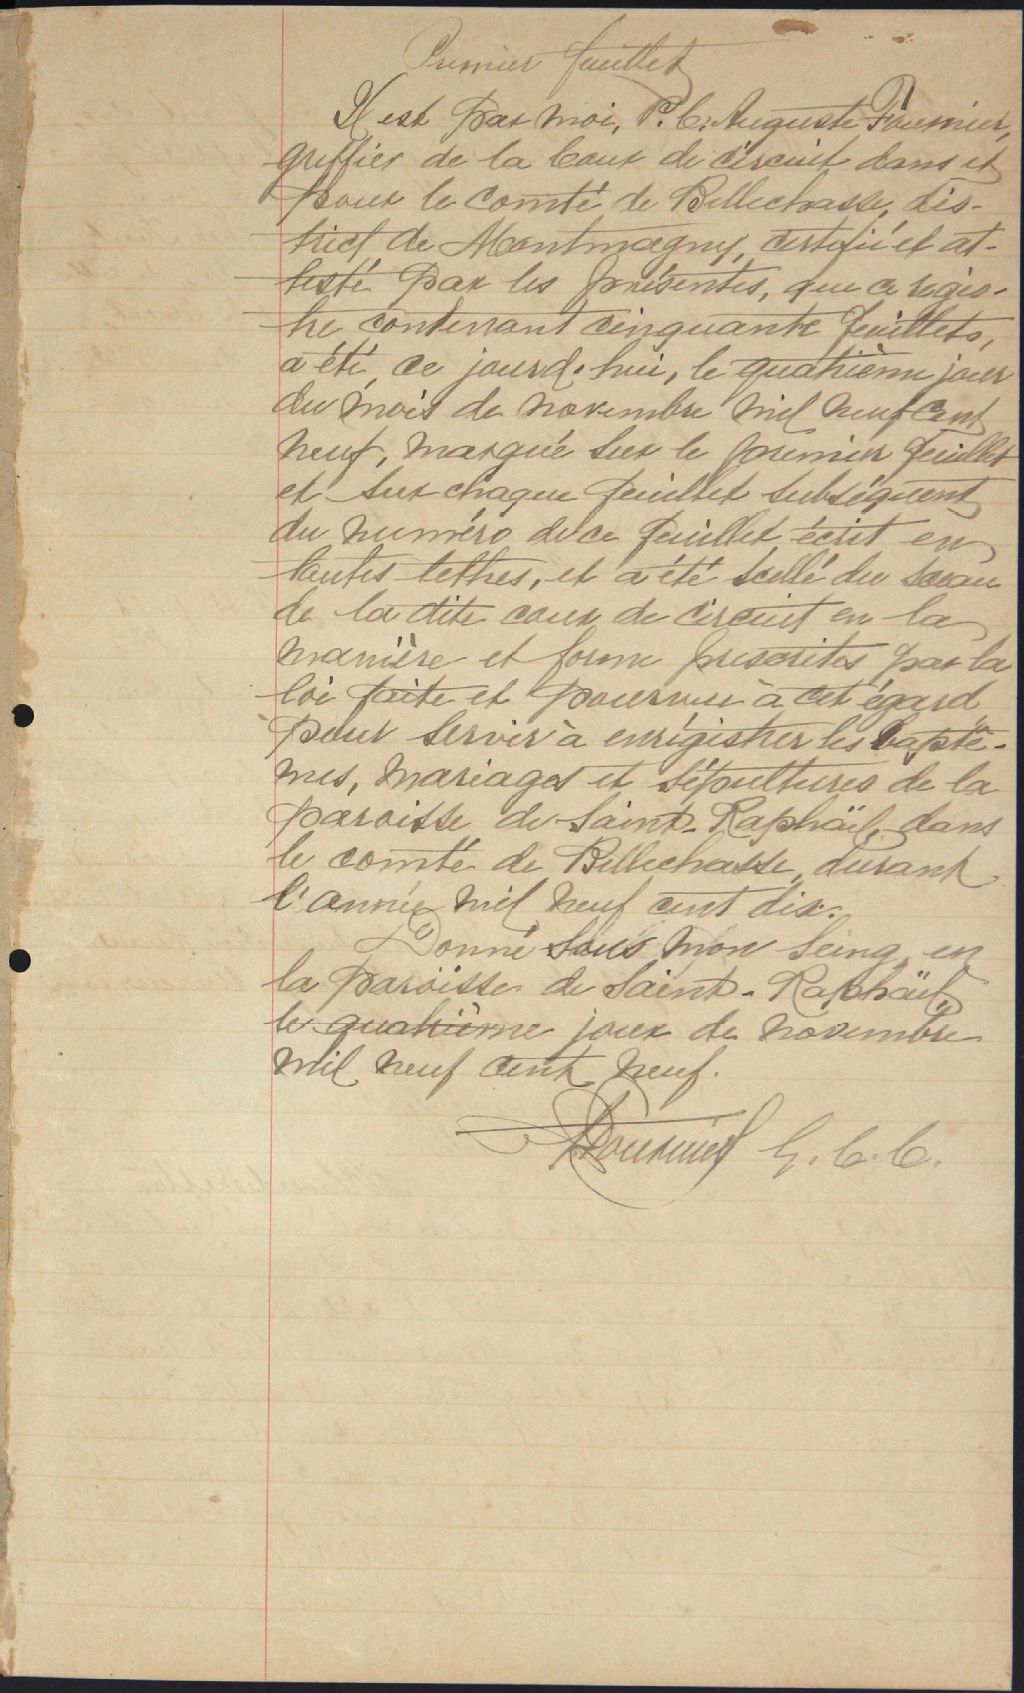 Premier feuillet
Il est par moi, P. C. Auguste Fournier,
greffier de la Cour de circuit dans et
pour le comté de Bellechasse, dis-
trict de Montmagny, certifié et at-
testé par les présentes, que ce regis-
tre contenant cinquante feuillets,
a été ce jourd'hui, le quatrième jour
du mois de novembre mil neuf cent
neuf, marqué sur le premier feuillet
et sur chaque feuillet subséquent
du numéro de ce feuillet écrit en
toutes lettres, et a été scellé du sceau
de la dite cour de circuit en la
manière et forme prescrites par la
loi faite et pourvue à cet égard
pour servir à enrégistrer les baptê-
mes, mariages et sépultures de la
paroisse de Saint-Raphäel, dans
le comté de Bellechasse, durant
l'année mil neuf cent dix.
Donné sous mon seing, en
la paroisse de Saint-Raphäel,
le quatrième jour de novembre
mil neuf cent neuf.
Fournier G. C. C.